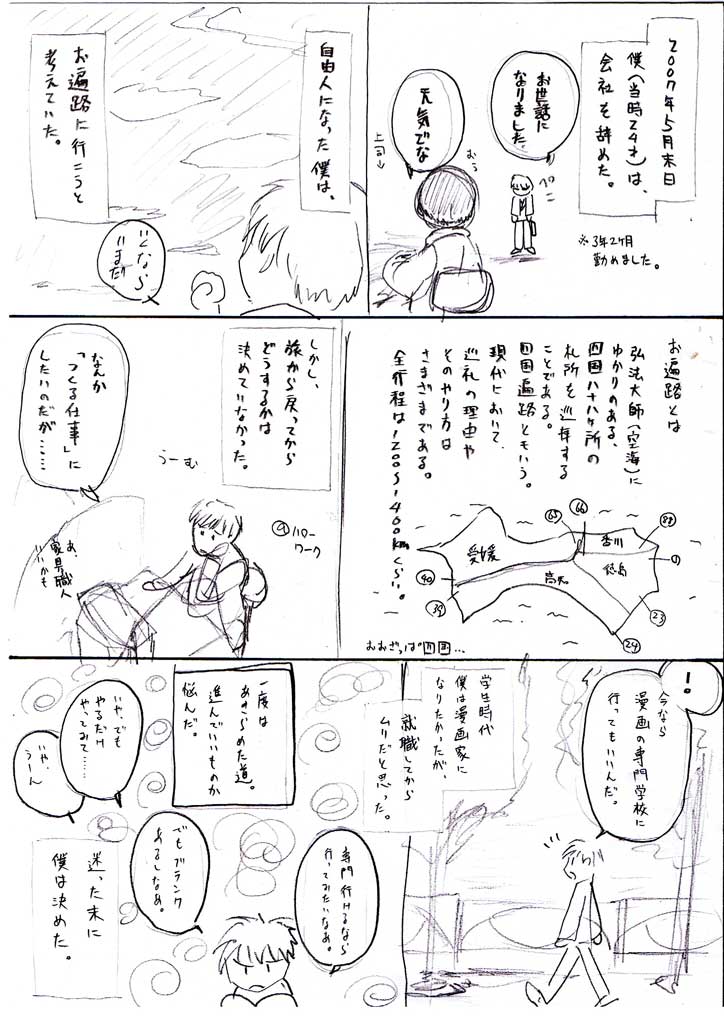 2007年5月末日
僕(当時24才)は、
会社を辞めた。
※3年2ヶ月
勤めました。
お世話に
なりました。
ペこ
元気でな
むう
上司→
自由人になった僕は、
お遍路に行こうと
考えていた。
いくなら
いまだ
お遍路とは
弘法大師(空海)に
ゆかりのある、
四国八十八ヶ所の
札所を巡拝する
ことである。
四国遍路ともいう。
現代において、
巡礼の理由や
そのやり方は
さまざまである。
全行程は1200~1400kmくらい。
愛媛
香川
徳島
高知
65
66
88
1
23
24
39
40
おおざっぱ四国…
しかし、
旅から戻ってから
どうするかは
決めていなかった。
なんか
「つくる仕事」に
したいのだが……
うーむ
ハロー
ワーク
あ、
家具職人
いいかも
!。
今なら
漫画の専門学校に
行ってもいいんだ。
学生時代
僕は漫画家に
なりたかったが、
就職してから
ムリだと思った。
一度は
あきらめた道。
進んでいいものか
悩んだ。
いや、でも
やるだけ
やってみて……
いや、
うーん
専門行けるなら
行ってみたいなあ。
でもブランク
あるしなあ。
迷った末に
僕は決めた。